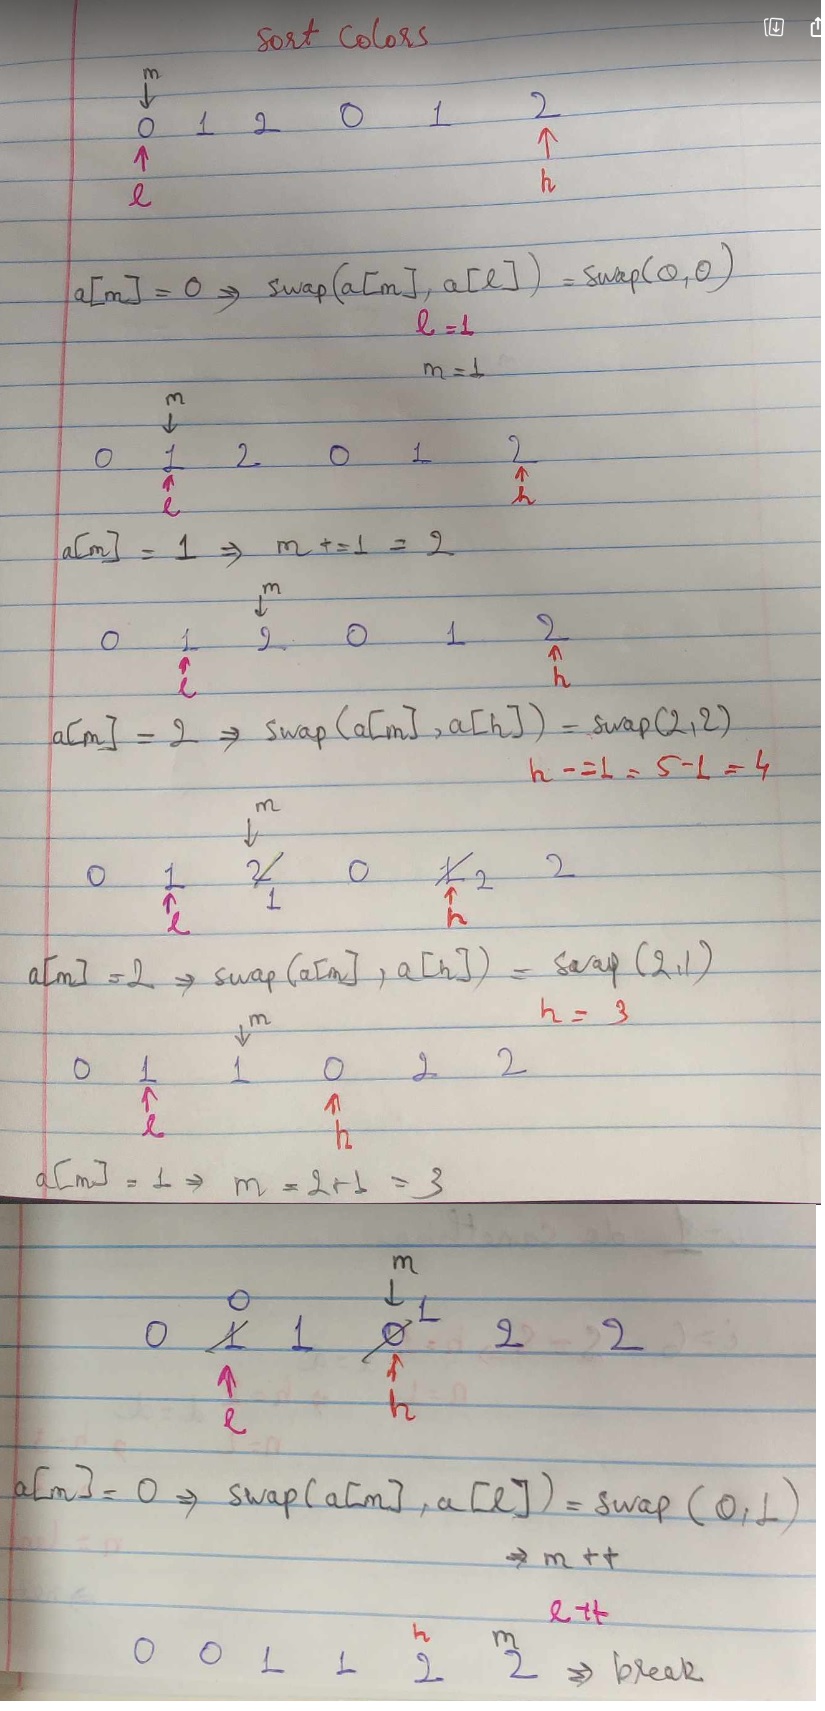 Sort Colors
m
↓
0 1 2 0 1 2
↑ ↑
l h
a[m] = 0 ⇒ swap(a[m], a[l]) = swap(0,0)
l = 1
m = 1
m
↓
0 1 2 0 1 2
↑ ↑
l h
a[m] = 1 ⇒ m += 1 = 2
m
↓
0 1 2 0 1 2
↑ ↑
l h
a[m] = 2 ⇒ swap(a[m], a[h]) = swap(2,2)
h -= 1 = 5-1 = 4
m
↓
0 1 2 0 1 2 2
1
↑ ↑
l h
a[m] = 2 ⇒ swap(a[m], a[h]) = swap(2,1)
h = 3
m
↓
0 1 1 0 2 2
↑ ↑
l h
a[m] = 1 ⇒ m = 2+1 = 3
m
↓
0 1
0 1 1 0 2 2
↑ ↑
l h
a[m] = 0 ⇒ swap(a[m], a[l]) = swap(0,1)
⇒ m++
l++
h m
0 0 1 1 2 2 ⇒ break